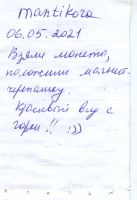 mantikora
06.05.2021
Взяли монету,
положили магнит-
черепашку.
Красивый вид с
горки!! :))